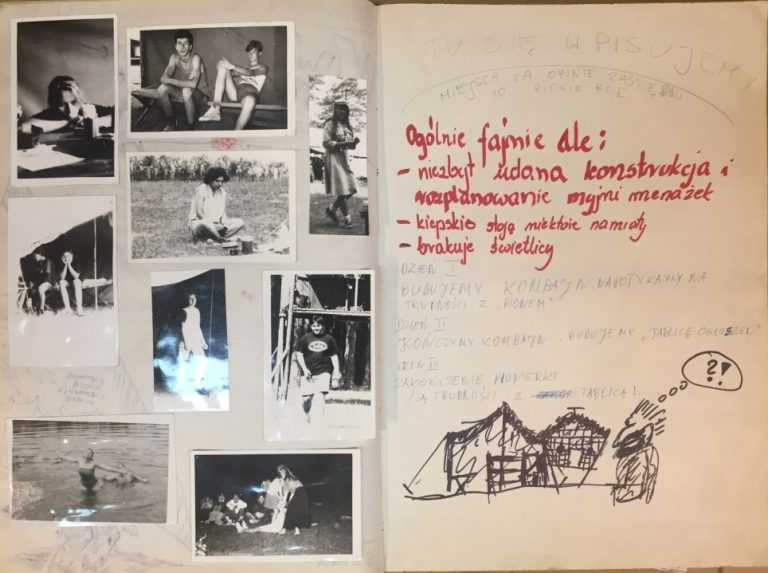 TU SIĘ WPISUJEMY!
MIEJSCA NA OPINIE ZASTĘPU
PO PIONIERCE
Ogólnie fajnie ale:
- niezbyt udana konstrukcja i
rozplanowanie myjni menażek
- kiepsko stoją niektóre namioty
- brakuje świetlicy
DZIEŃ I
BUDUJEMY KOMBAJN, NAPOTYKAMY NA
TRUDNOŚCI Z „PIONEM"
DZIEŃ II
KOŃCZYMY KOMBAJN, BUDUJEMY „TABLICĘ OGŁOSZEŃ"
DZIEŃ III
ZAKOŃCZENIE PIONIERKI
TRUDNOŚCI Z TABLICĄ
?!